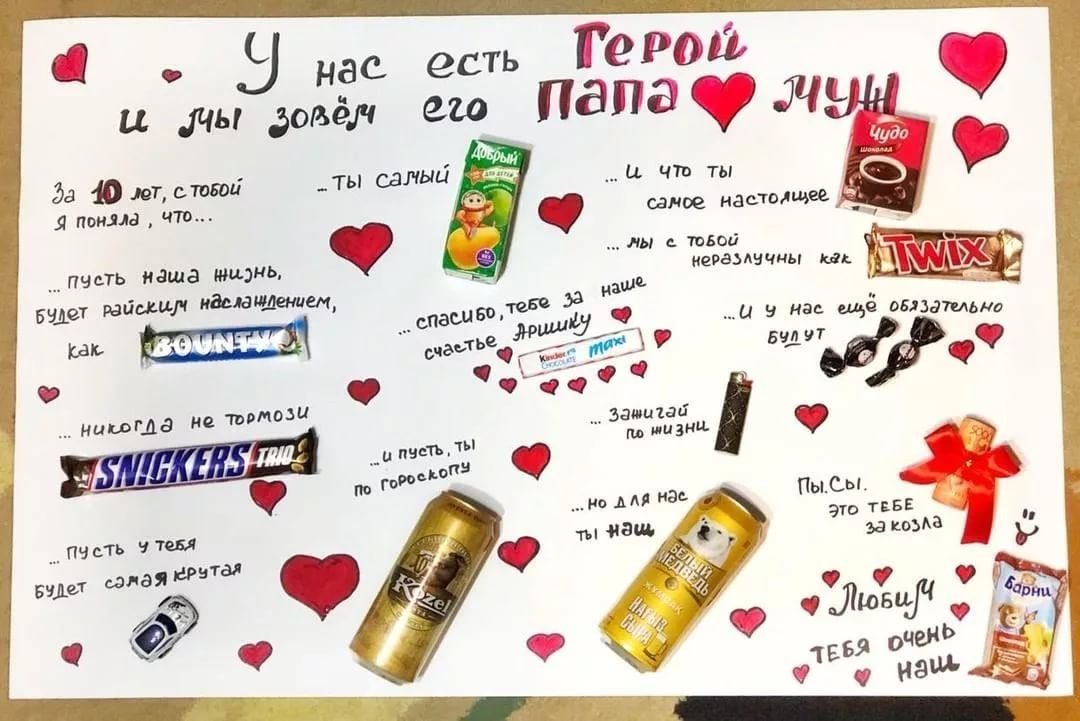 У нас есть Герой
и мы зовём его ПАПА МУЖ
За 10 лет, с тобой
я поняла, что...
...ты самый
Добрый
для детей
...и что ты
самое настоящее
Чудо
Шоколад
...мы с тобой
неразлучны как
TWIX
...пусть наша жизнь,
будет райским наслаждением,
как
BOUNTY
...спасибо, тебе за наше
счастье Аришку
Kinder
CHOCOLATE
maxi
...и у нас ещё обязательно
будут
...никогда не тормози
SNICKERS TRIO
...и пусть, ты
по гороскопу
Kozel
...Зажигай
по жизни
...но для нас
ты наш
БЕЛЫЙ
МЕДВЕДЬ
Пы.Сы.
это тебе
за козла
...пусть у тебя
будет самая крутая
Любим
тебя очень
наш
Барни